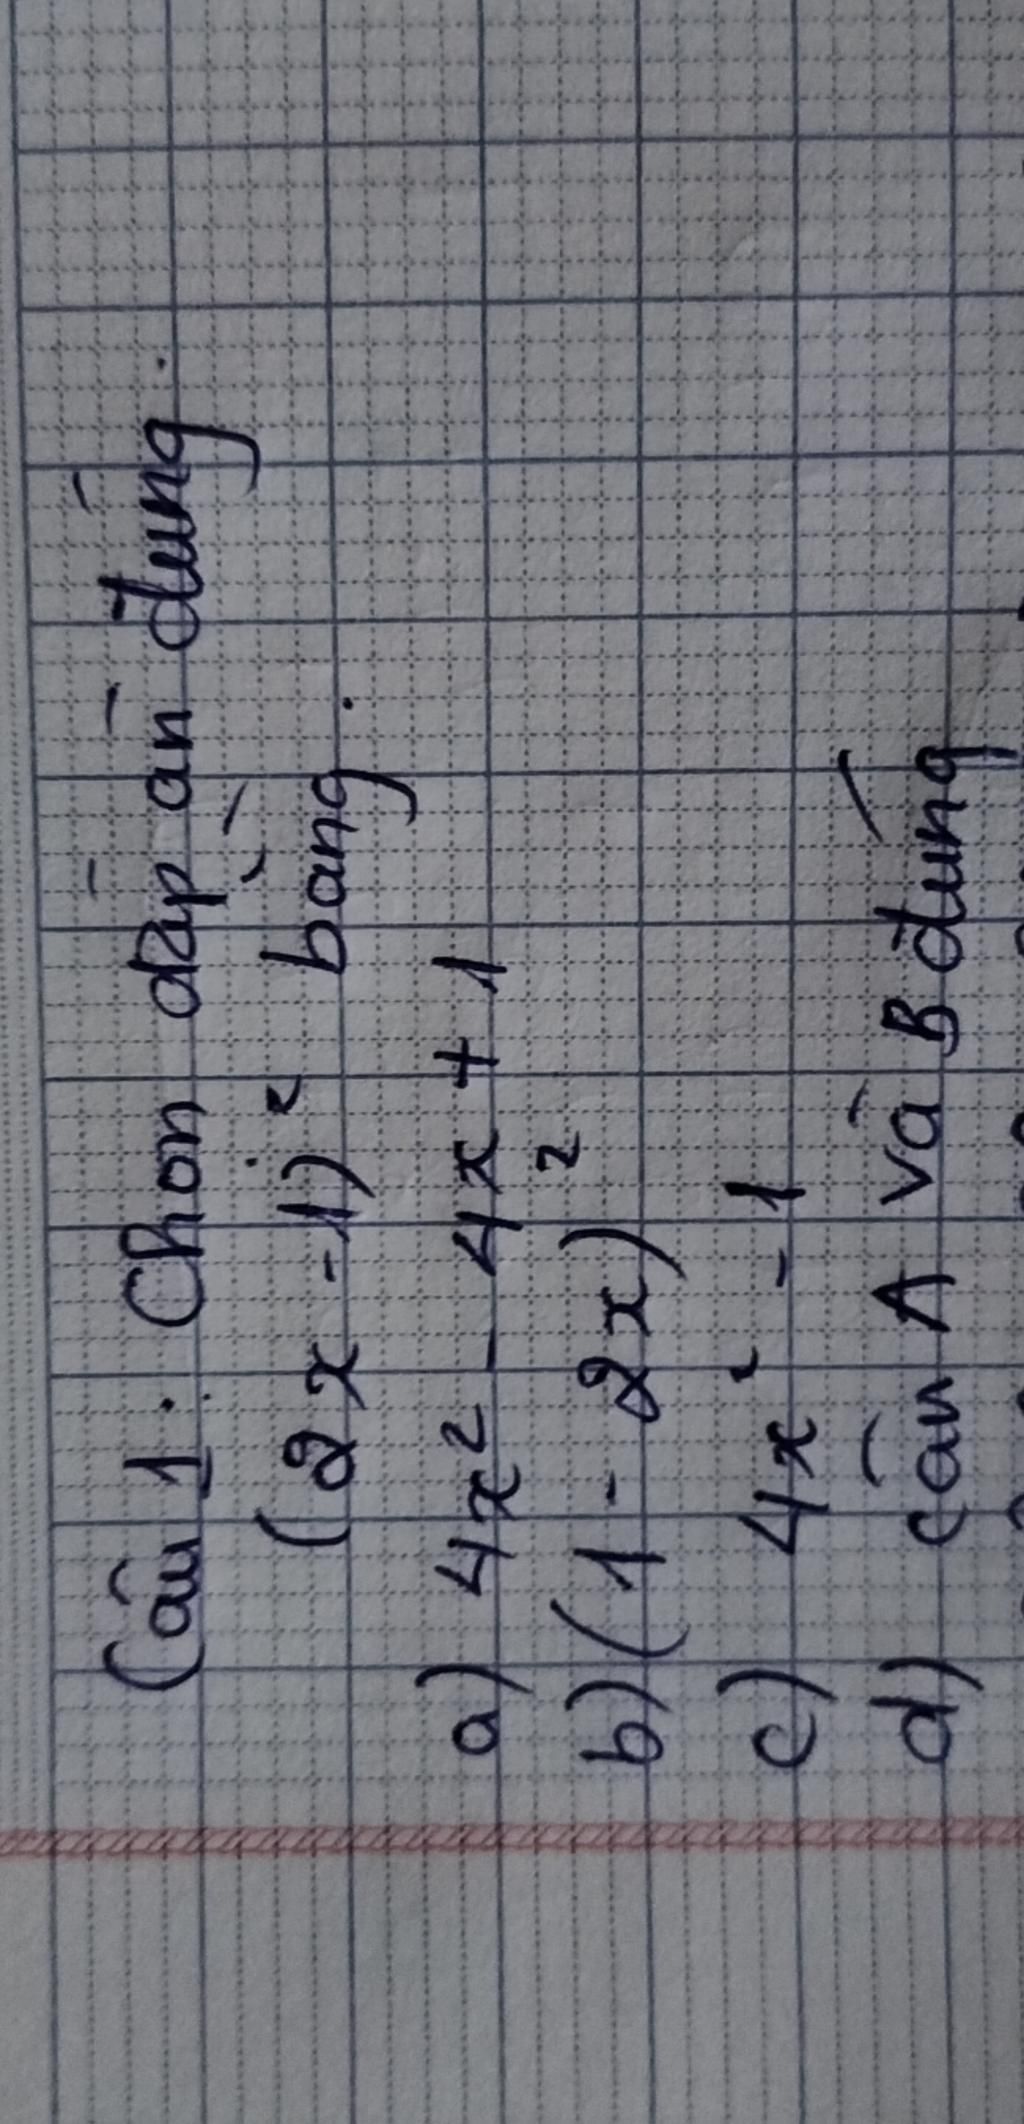 Câu 1: Chọn đáp án đúng.
(2x - 1)² bằng.
a) 4x² - 4x + 1
b) (1 - 2x)²
c) 4x² - 1
d) câu A và B đúng